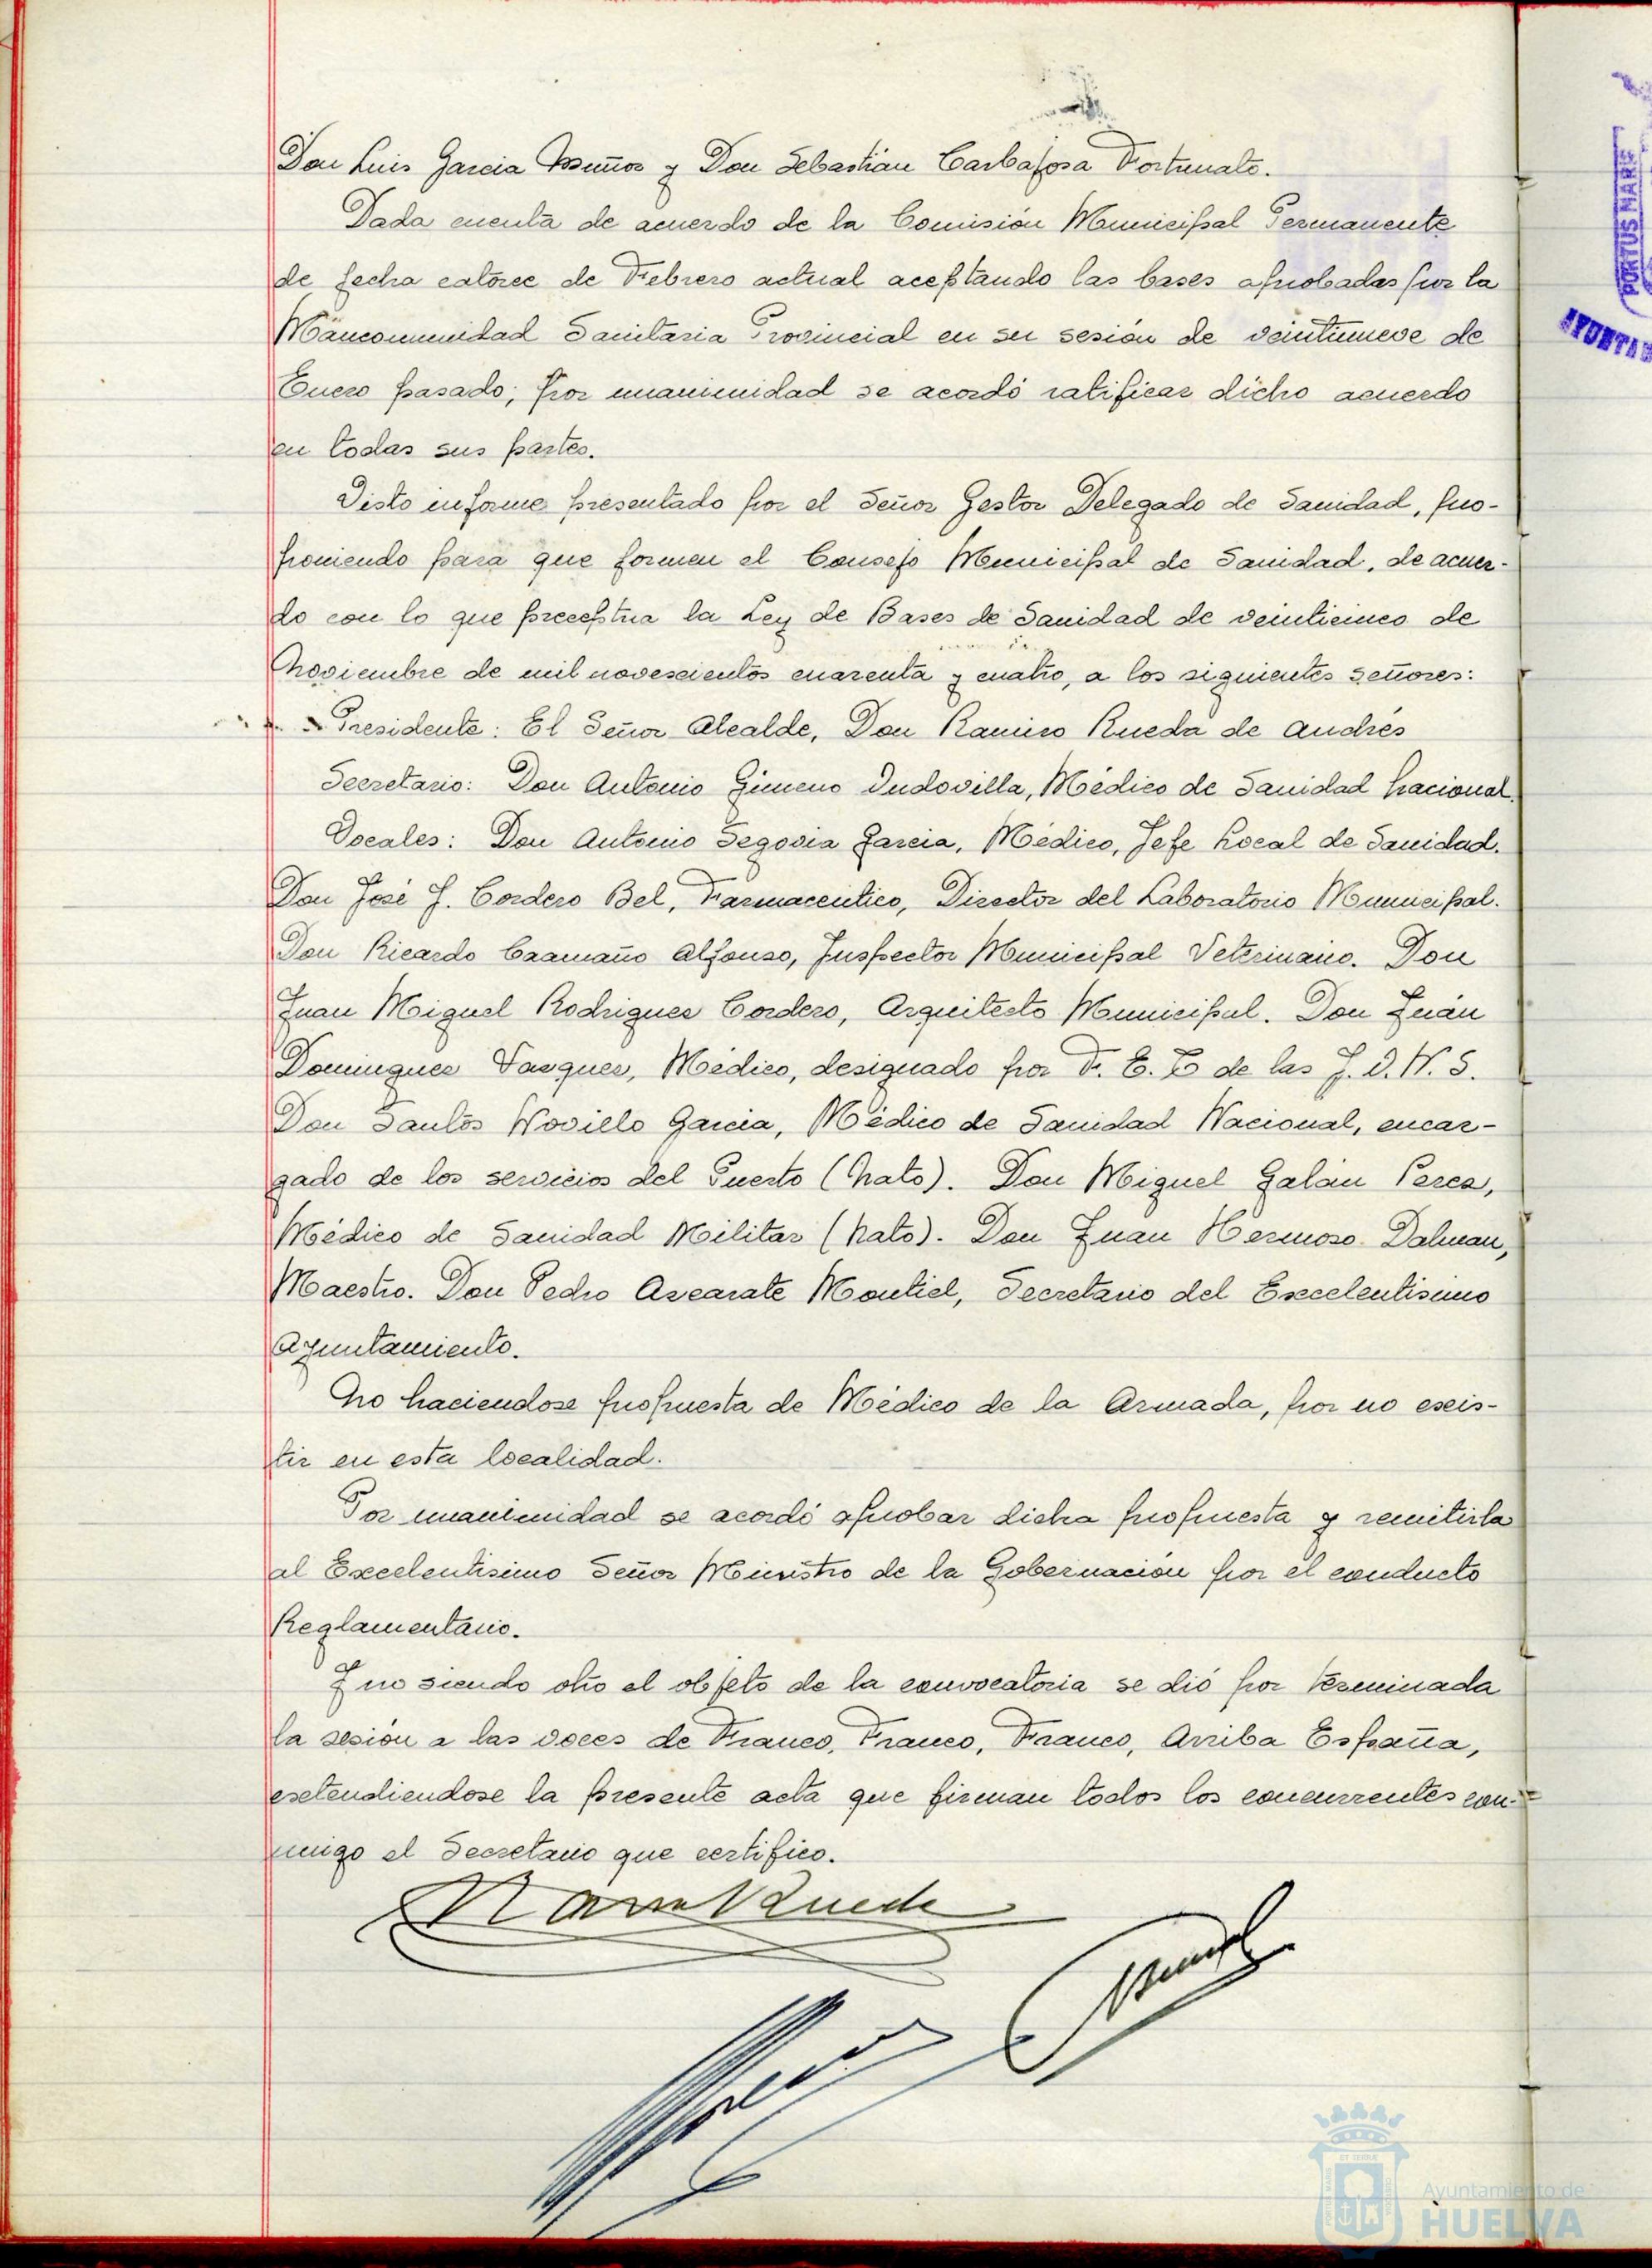 Don Luis Garcia Muñoz y Don Sebastián Carbajosa Fortunato.
Dada cuenta de acuerdo de la Comisión Municipal Permanente
de fecha catorce de Febrero actual aceptando las bases aprobadas por la
Mancomunidad Sanitaria Provincial en su sesión de veintinueve de
Enero pasado; por unanimidad se acordó ratificar dicho acuerdo
en todas sus partes.
Visto informe presentado por el Señor Gestor Delegado de Sanidad, pro-
poniendo para que formen el Consejo Municipal de Sanidad, de acuer-
do con lo que preceptua la Ley de Bases de Sanidad de veinticinco de
Noviembre de mil novescientos cuarenta y cuatro, a los siguientes señores:
Presidente: El Señor Alcalde, Don Ramiro Rueda de Andrés
Secretario: Don Antonio Gimeno Ondovilla, Médico de Sanidad Nacional.
Vocales: Don Antonio Segovia Garcia, Médico, Jefe Local de Sanidad.
Don José J. Cordero Bel, Farmaceútico, Director del Laboratorio Municipal.
Don Ricardo Caamaño Alfonso, Inspector Municipal Veterinario. Don
Juan Miguel Rodriguez Cordero, Arquitecto Municipal. Don Juán
Dominguez Vazquez, Médico, designado por F. E. T. de las J. O. N. S.
Don Santos Novillo Garcia, Médico de Sanidad Nacional, encar-
gado de los servicios del Puerto (Nato). Don Miguel Galán Perez,
Médico de Sanidad Militar (Nato). Don Juan Hermoso Dalman,
Maestro. Don Pedro Azcarate Montiel, Secretario del Excelentisimo
Ayuntamiento.
No haciendose propuesta de Médico de la Armada, por no exis-
tir en esta localidad.
Por unanimidad se acordó aprobar dicha propuesta y remitirla
al Excelentisimo Señor Ministro de la Gobernación por el conducto
Reglamentario.
Y no siendo otro el objeto de la convocatoria se dió por terminada
la sesión a las voces de Franco, Franco, Franco, Arriba España,
extendiendose la presente acta que firman todos los concurrentes con-
migo el Secretario que certifico.
Ramiro Rueda
PORTUS MARIS
AYUNTA
Ayuntamiento de
HUELVA